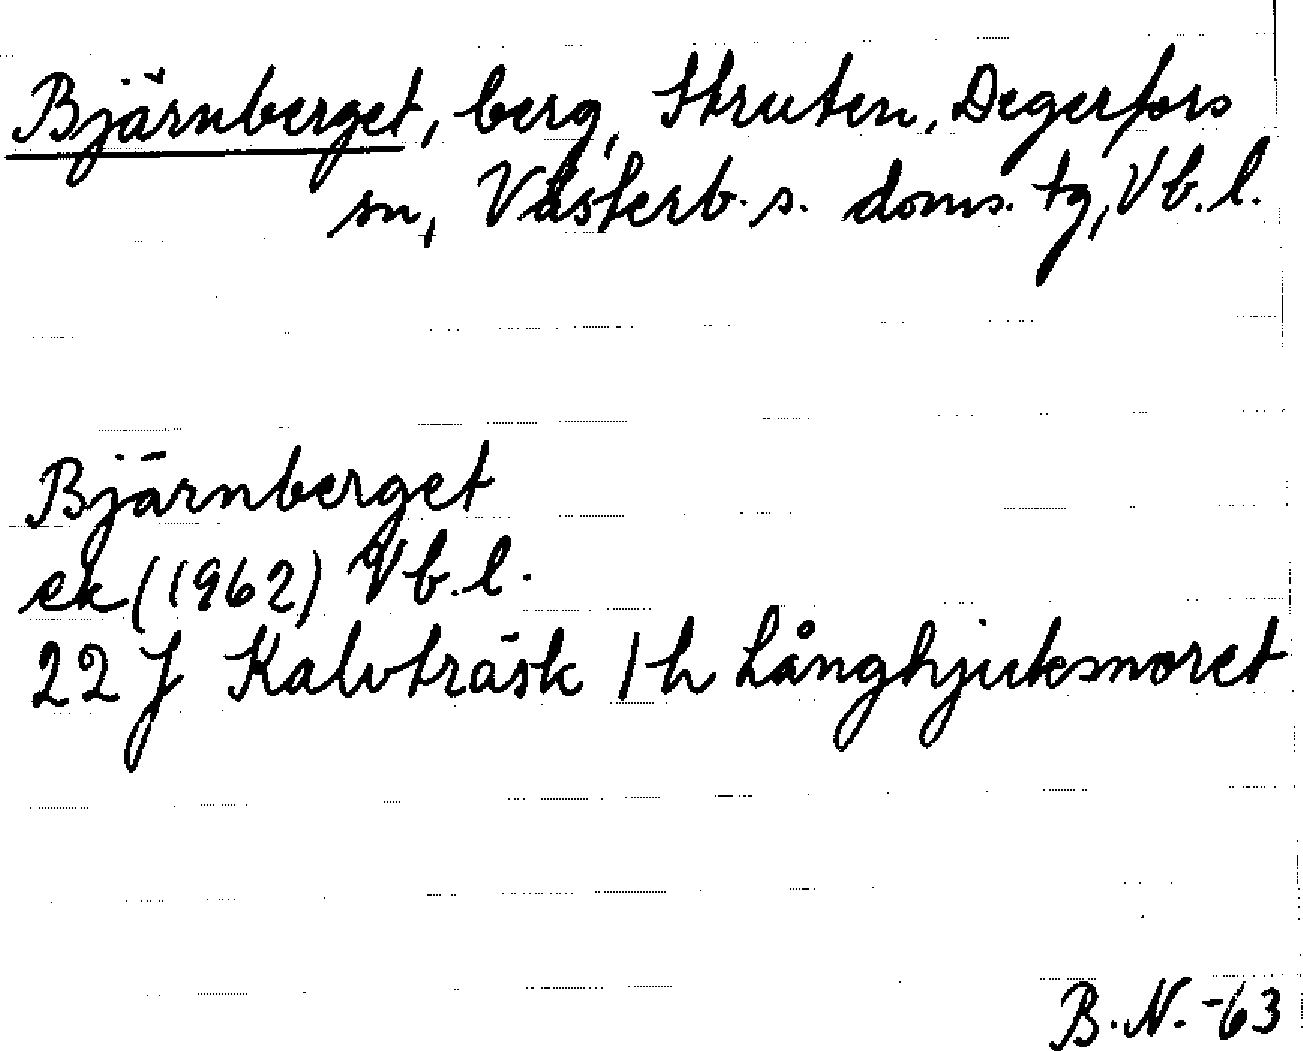 Bjärnberget, berg, Struten, Degerfors
sn, Västerb. s. doms. tg, Vb. l.
Bjärnberget
ek (1962) Vb. l.
22 J Kalvträsk 1 h Långhjuksmoret
B. N. -63